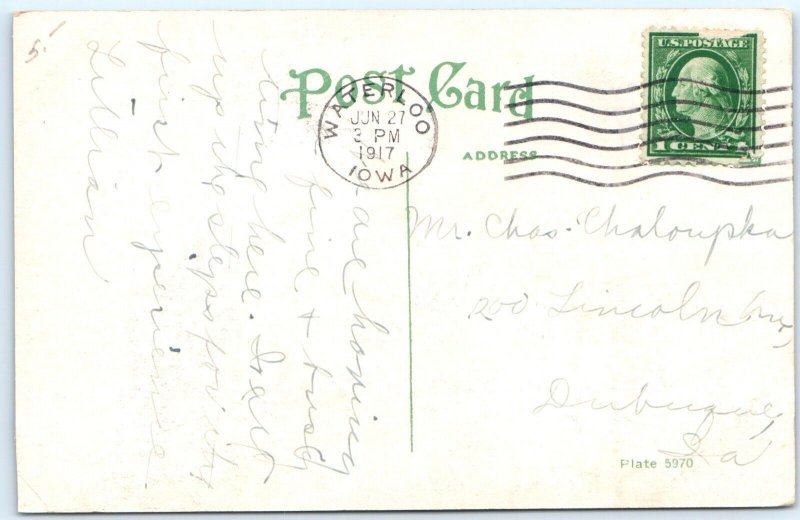 5
Post Card
WATERLOO
JUN 27
3 PM
1917
IOWA
U.S. POSTAGE
1 CENT
ADDRESS
Mr. Chas. Chaloupka
200 Lincoln Ave,
Dubuque,
Ia
Plate 5970
are having
fine + busy
time here. I sat
up the steps for the
first experience.
Lillian